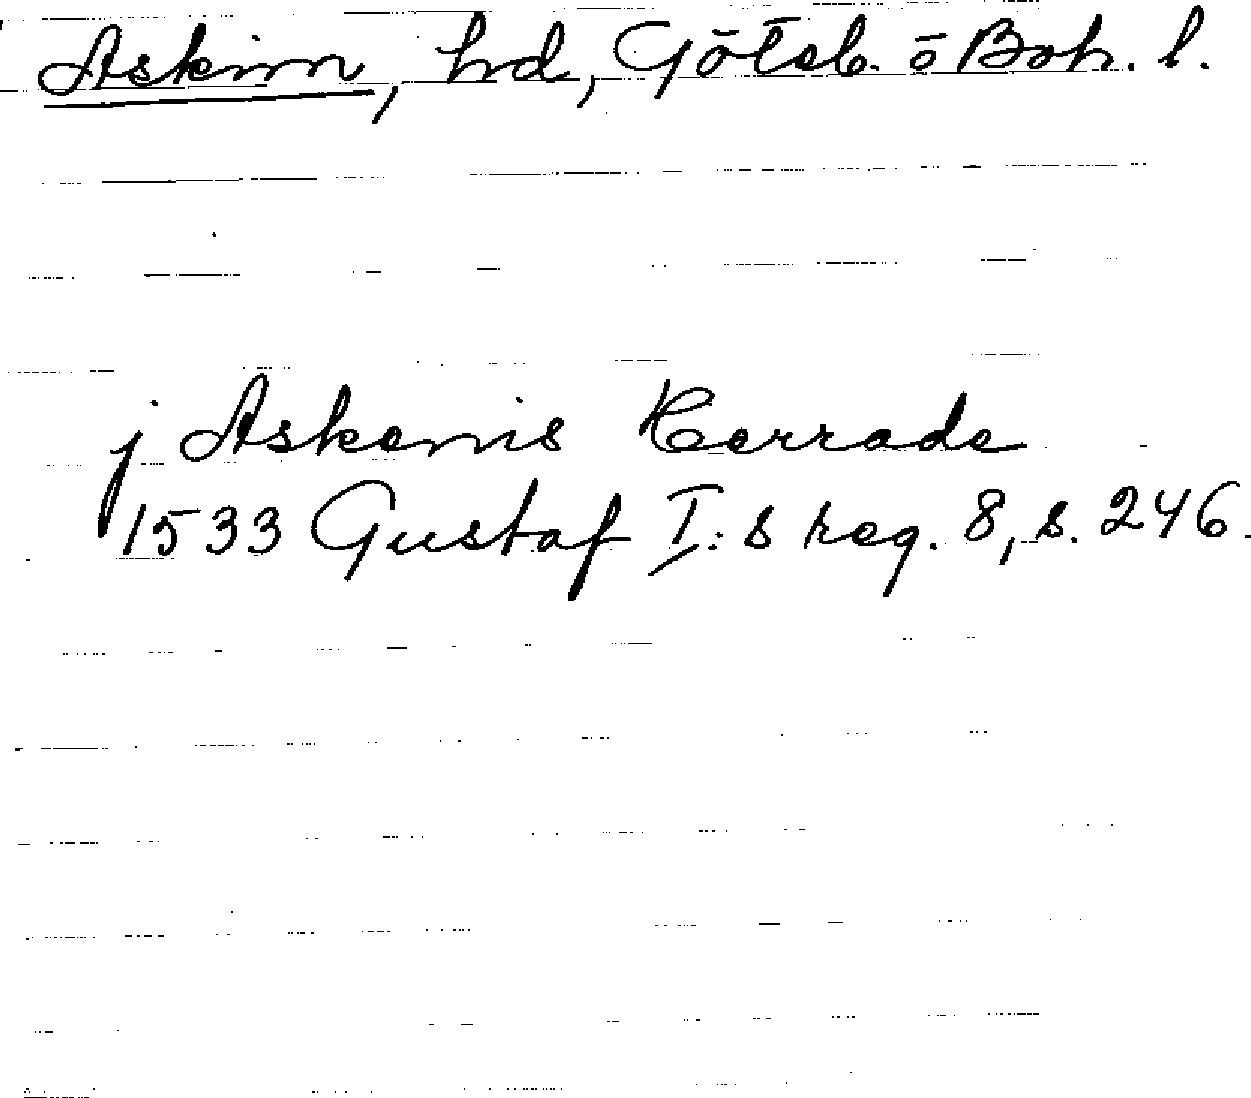 Askim, hd, Götsb. ō Boh. l.
j Askemis Herrade
1533 Gustaf I:s reg. 8, s. 246.